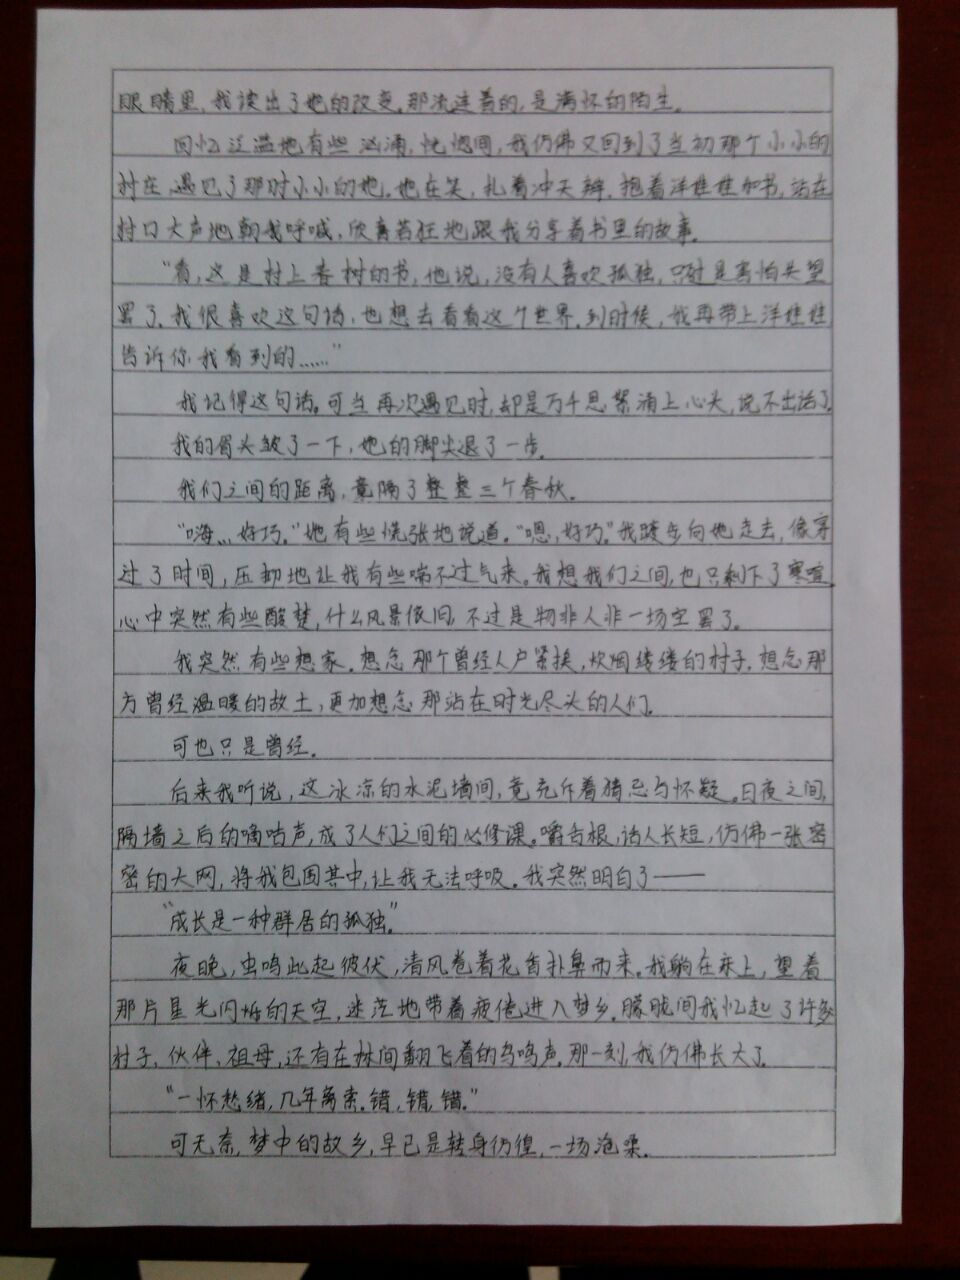 眼睛里,我读出了她的改变。那流连着的,是满怀的陌生。
回忆泛滥地有些汹涌,恍惚间,我仿佛又回到了当初那个小小的
村庄,遇见了那时小小的她。她在笑,扎着冲天辫,抱着洋娃娃和书,站在
村口大声地朝我呼喊,欣喜若狂地跟我分享着书里的故事。
“看,这是村上春树的书,他说,没有人喜欢孤独,只时是害怕失望
罢了。我很喜欢这句话,也想去看看这个世界。到时候,我再带上洋娃娃
告诉你我看到的……”
我记得这句话。可当再次遇见时,却是万千思絮涌上心头,说不出话了。
我的眉头皱了一下,她的脚尖退了一步。
我们之间的距离,竟隔了整整三个春秋。
“嗨…好巧。”她有些慌张地说道。“嗯,好巧。”我踱步向她走去,像穿
过了时间,压抑地让我有些喘不过气来。我想我们之间,也只剩下了寒暄,
心中突然有些酸楚,什么风景依旧,不过是物非人非一场空罢了。
我突然有些想家。想念那个曾经人户紧挨,炊烟缕缕的村子。想念那
方曾经温暖的故土,更加想念那站在时光尽头的人们。
可也只是曾经。
后来我听说,这冰凉的水泥墙间,竟充斥着猜忌与怀疑。日夜之间,
隔墙之后的嘀咕声,成了人们之间的必修课。嚼舌根,话人长短,仿佛一张密
密的大网,将我包围其中,让我无法呼吸。我突然明白了——
“成长是一种群居的孤独”
夜晚,虫鸣此起彼伏,清风卷着花香扑鼻而来。我躺在床上,望着
那片星光闪烁的天空,迷茫地带着疲倦进入梦乡。朦胧间我忆起了许多
村子、伙伴、祖母,还有在林间翻飞着的鸟鸣声。那一刻,我仿佛长大了。
“一怀愁绪,几年离索。错,错,错。”
可无奈,梦中的故乡,早已是转身仿徨,一场泡桑。